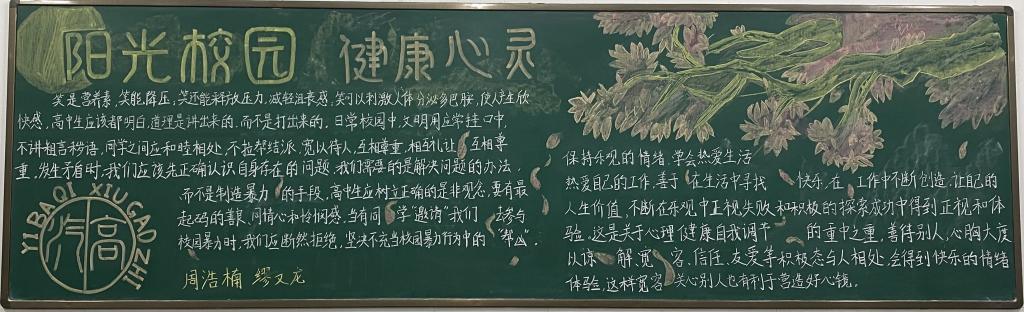 阳光校园 健康心灵
笑是营养素,笑能降压,笑还能释放压力,减轻沮丧感,笑可以刺激人体分泌多巴胺,使人产生欣
快感,高中生应该都明白,道理是讲出来的,而不是打出来的。日常校园中,文明用应常挂口中,
不讲粗言秽语,同学之间应和睦相处,不拉帮结派,宽以待人,互相尊重,相互礼让,互相尊
重,发生矛盾时,我们应该先正确认识自身存在的问题,我们需要的是解决问题的办法,
而不是制造暴力的手段,高中生应树立正确的是非观念,要有最
起码的善良、同情心和怜悯感,当有同学“邀请”我们去参与
校园暴力时,我们应断然拒绝,坚决不充当校园暴力行为中的“帮凶”。
周浩楠 缪又龙
YIBAQI XIUGAOZHI
汽高
保持乐观的情绪,学会热爱生活
热爱自己的工作,善于在生活中寻找快乐,在工作中不断创造,让自己的
人生价值,不断在乐观中正视失败和积极的探索成功中得到正视和体
验。这是关于心理健康自我调节的重中之重,善待别人,心胸大度
以谅解、宽容、信任、友爱等积极态与人相处,会得到快乐的情绪
体验,这样宽容关心别人也有利于营造好心钱。